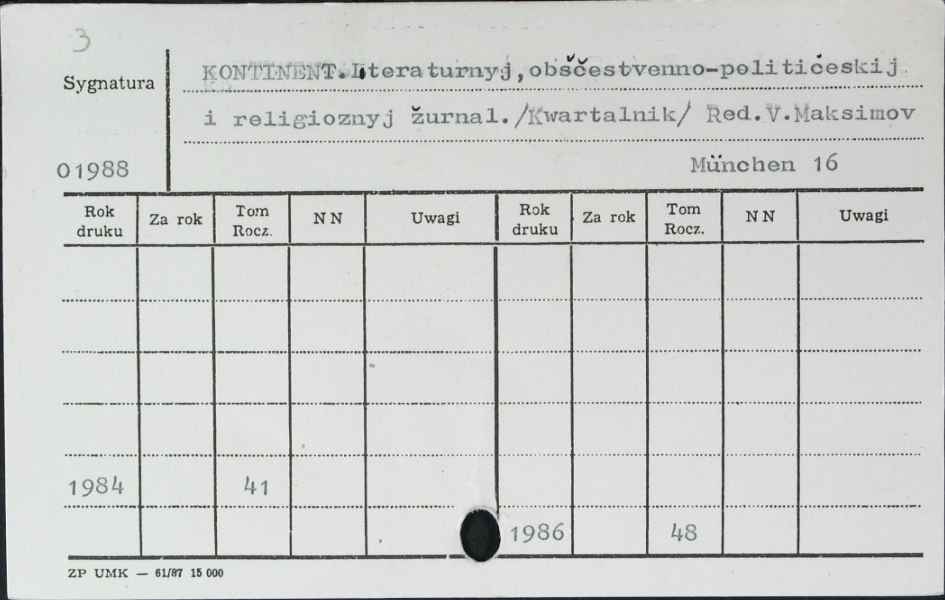 3
KONTINENT. Literaturnyj, obščestvenno-političeskij
Sygnatura
i religioznyj žurnal. /Kwartalnik/ Red. V. Maksimov
01988
München 16
Rok druku Za rok Tom Rocz. NN Uwagi Rok druku Za rok Tom Rocz. NN Uwagi
1984 41
1986 48
ZP UMK — 61/87 15 000